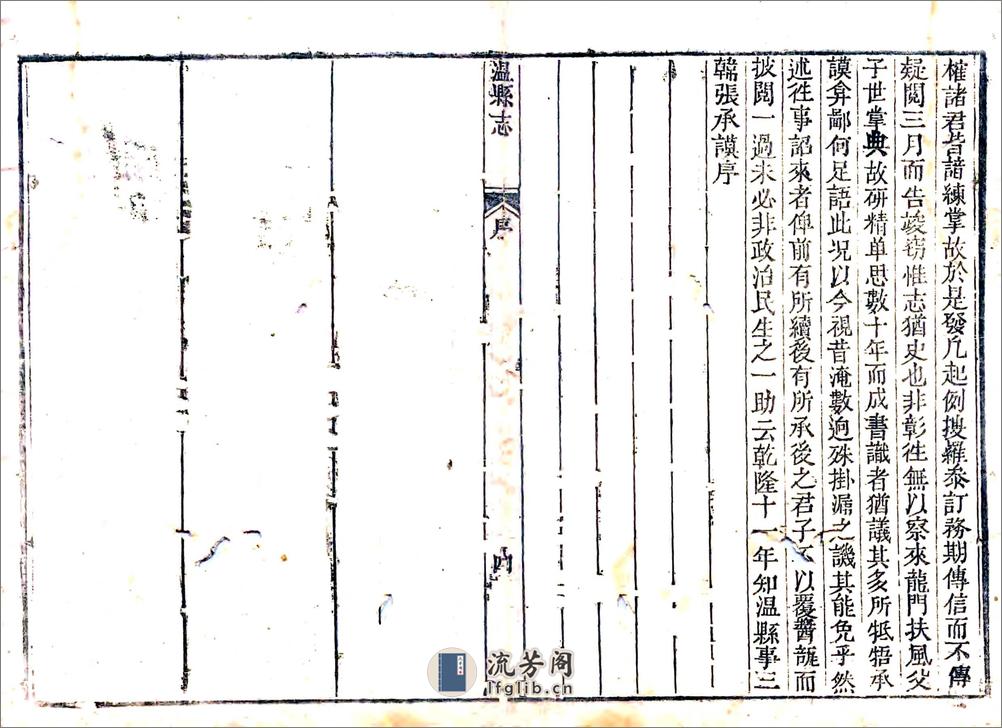 榷諸君皆諳練掌故於是發凡起例搜羅叅訂務期傳信而不傳
疑閱三月而告竣窃惟志猶史也非彰徃無以察來龍門扶風父
子世掌典故研精单思數十年而成書識者猶議其多所牴牾承
謨弇鄙何足語此况以今視昔淹數逈殊掛漏之譏其能免乎然
述徃事詔來者俾前有所續後有所承後之君子不以覆醬瓿而
披閱一過未必非政治民生之一助云乾隆十一年知溫縣事三
韓張承謨序
溫縣志
序
四
流芳阁
lfglib.cn